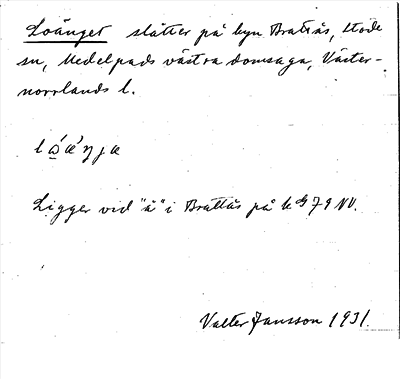 Loänget slåtter på byn Brattås, Stöde
sn, Medelpads västra domsaga, Väster-
norrlands l.
Ligger vid "å" i Brattås på kbl 79 NV.
Valter Jansson 1931.